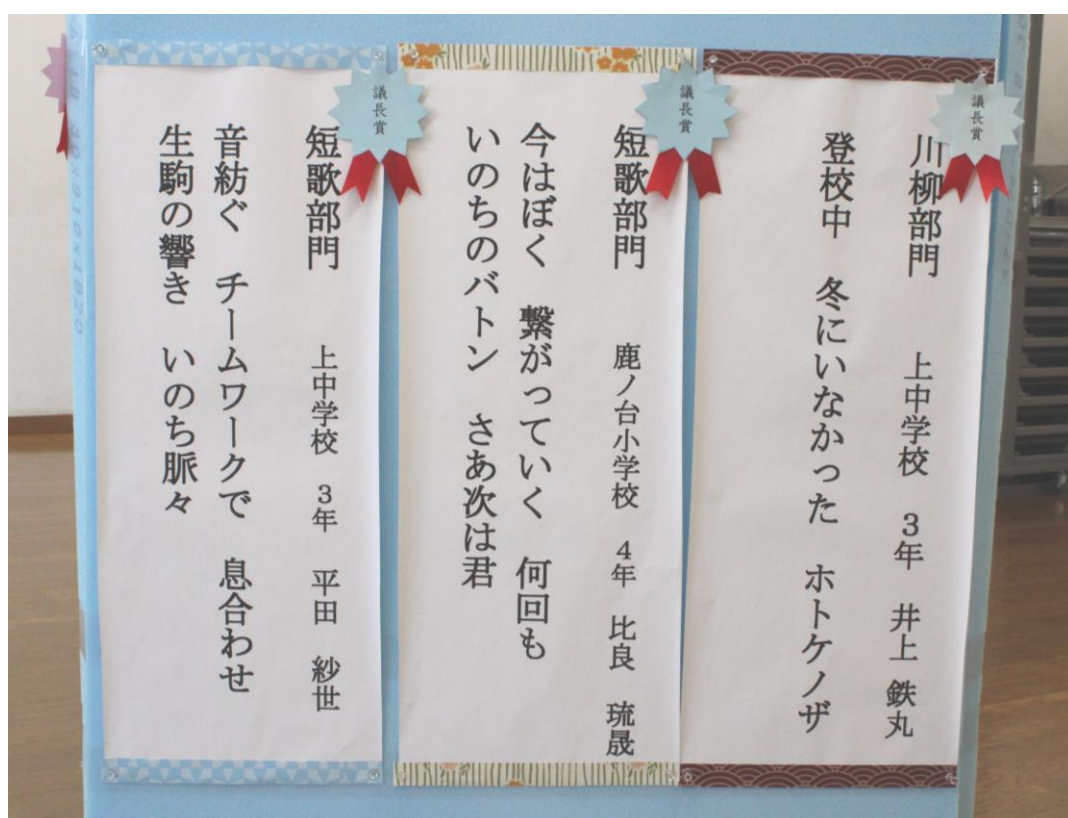 議長賞
川柳部門　上中学校　３年　井上 鉄丸
登校中　冬にいなかった　ホトケノザ
議長賞
短歌部門　鹿ノ台小学校　４年　比良　琉晟
今はぼく　繋がっていく　何回も
いのちのバトン　さあ次は君
議長賞
短歌部門　上中学校　３年　平田　紗世
音紡ぐ　チームワークで　息合わせ
生駒の響き　いのち脈々